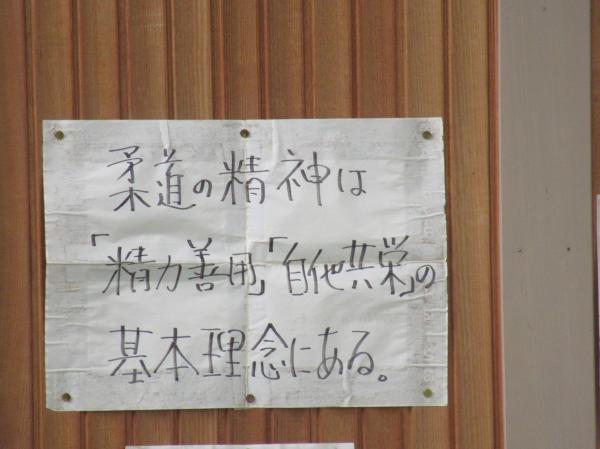 柔道の精神は
「精力善用」「自他共栄」の
基本理念にある。